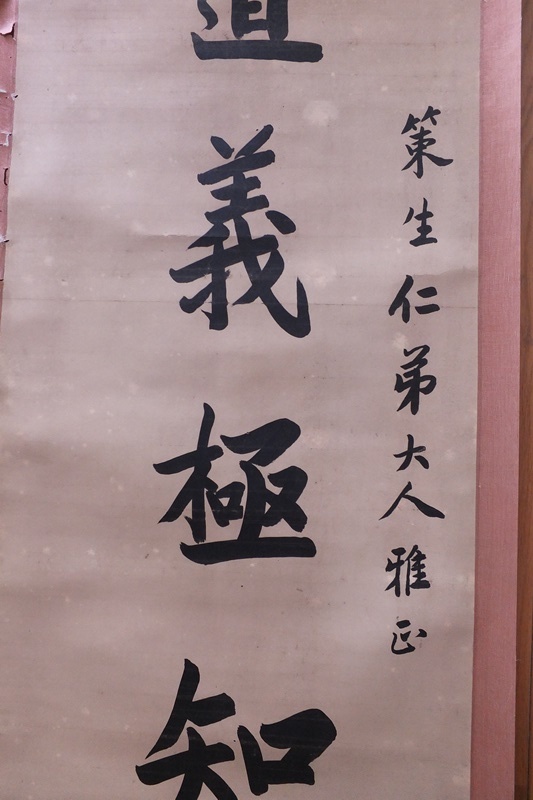 策生仁弟大人雅正
道義極知